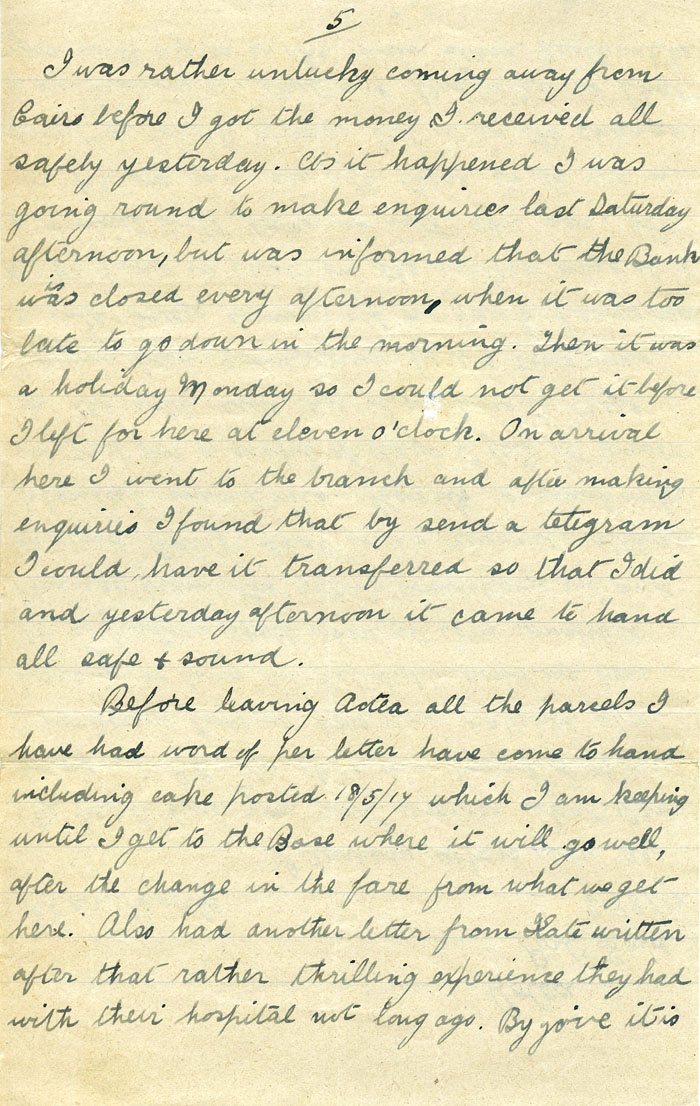 5
I was rather unlucky coming away from
Cairo before I got the money I received all
safely yesterday. As it happened I was
going round to make enquiries last Saturday
afternoon, but was informed that the Bank
was closed every afternoon, when it was too
late to go down in the morning. Then it was
a holiday Monday so I could not get it before
I left for here at eleven o'clock. On arrival
here I went to the branch and after making
enquiries I found that by send a telegram
I could have it transferred so that I did
and yesterday afternoon it came to hand
all safe + sound.
Before leaving Aotea all the parcels I
have had word of per letter have come to hand
including cake posted 18/5/17 which I am keeping
until I get to the Base where it will go well,
after the change in the fare from what we get
here. Also had another letter from Kate written
after that rather thrilling experience they had
with their hospital not long ago. By jove it is